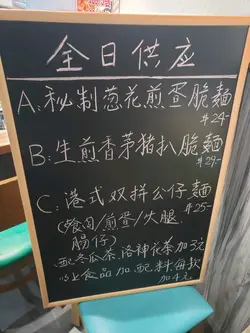 全日供应
A:秘制葱花煎蛋脆麵
$24-
B:生煎香茅豬扒脆麵
$29-
C:港式双拼公仔麵
$25-
(餐肉/煎蛋/火腿
腸仔)
配冬瓜茶、洛神花茶加3元
以上食品加配料每款
加4元